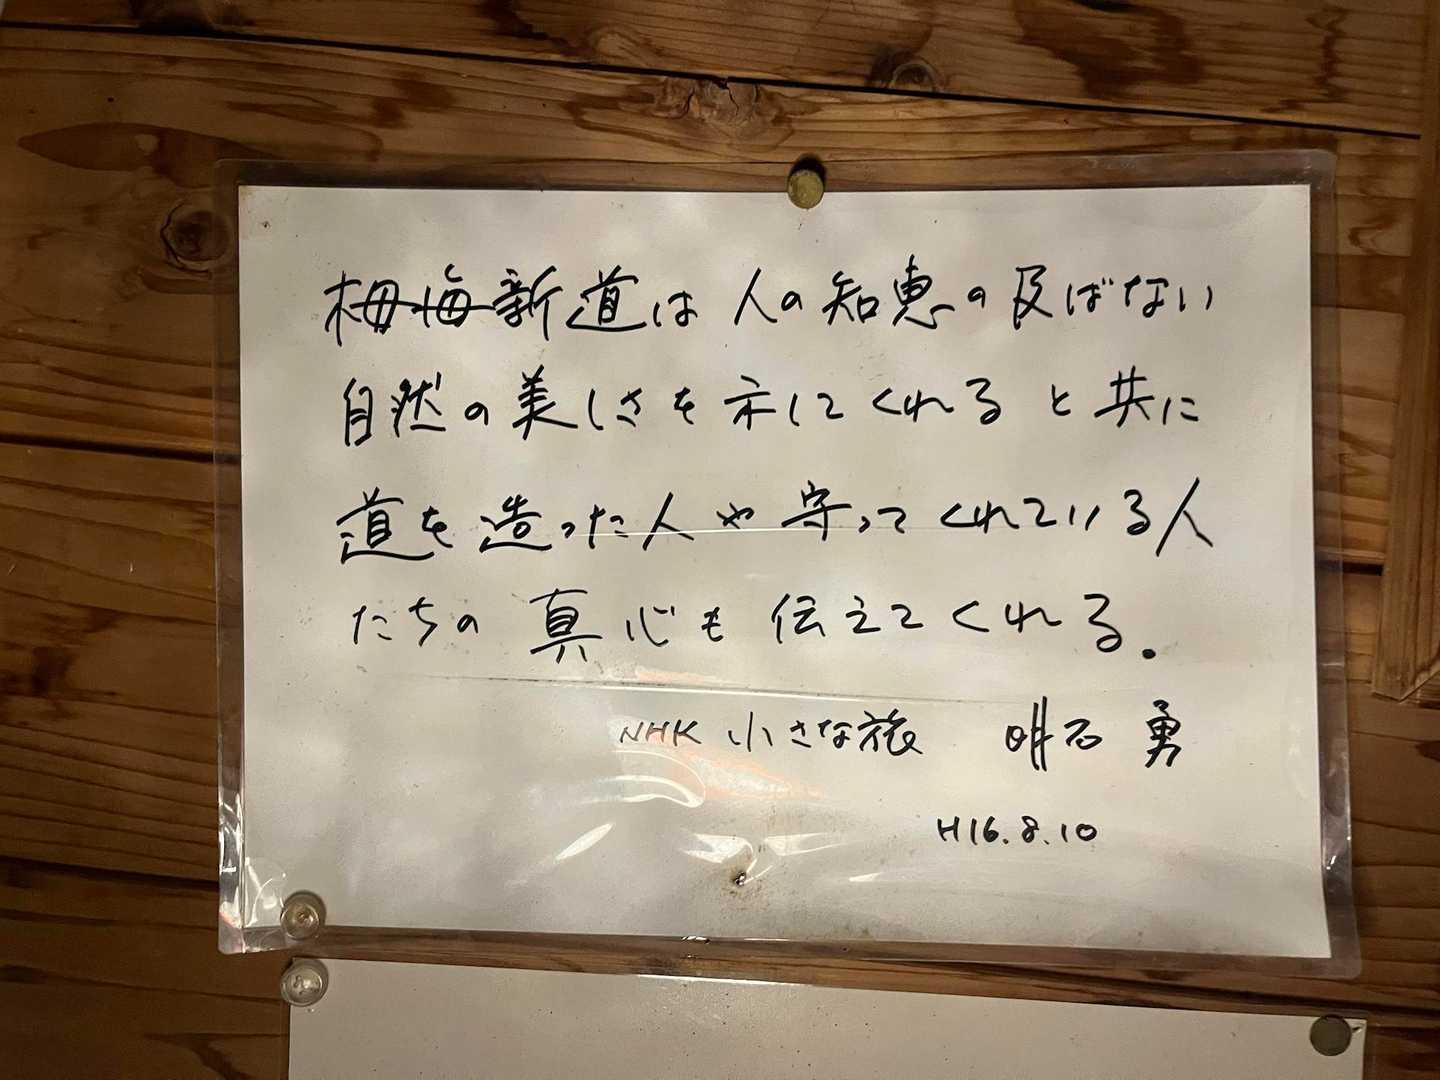 栂海新道は人の知恵の及ばない
自然の美しさを示してくれると共に
道を造った人や守ってくれている人
たちの真心も伝えてくれる.
NHK 小さな旅 明石 勇
H16.8.10